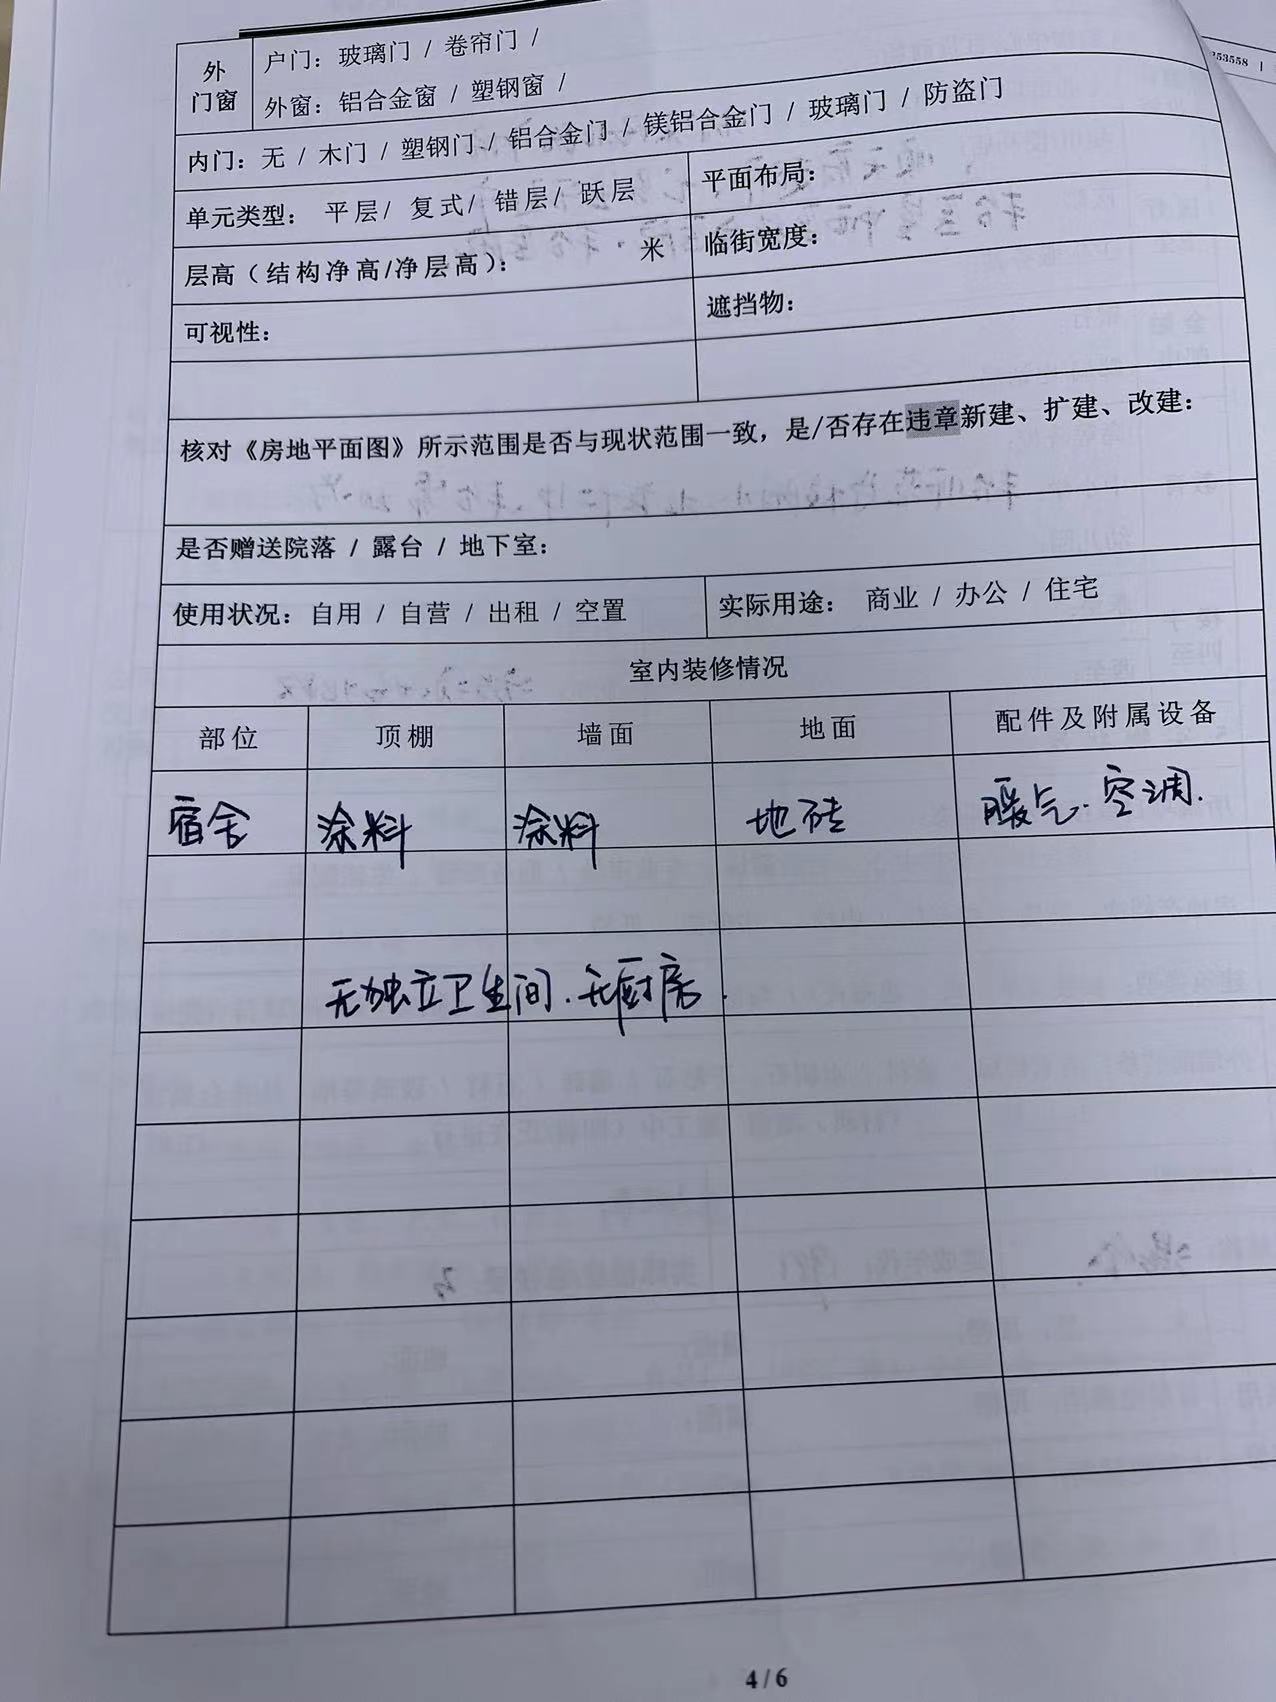 253558 |
外
门窗
户门：玻璃门 / 卷帘门 /
外窗：铝合金窗 / 塑钢窗 /
内门：无 / 木门 / 塑钢门 / 铝合金门 / 镁铝合金门 / 玻璃门 / 防盗门
单元类型： 平层/ 复式/ 错层/ 跃层
平面布局：
层高（结构净高/净层高）： 米
临街宽度：
可视性：
遮挡物：
核对《房地平面图》所示范围是否与现状范围一致，是/否存在违章新建、扩建、改建：
是否赠送院落 / 露台 / 地下室：
使用状况：自用 / 自营 / 出租 / 空置
实际用途： 商业 / 办公 / 住宅
室内装修情况
部位 顶棚 墙面 地面 配件及附属设备
宿舍 涂料 涂料 地砖 暖气.空调.
无独立卫生间.无厨房.
4 / 6